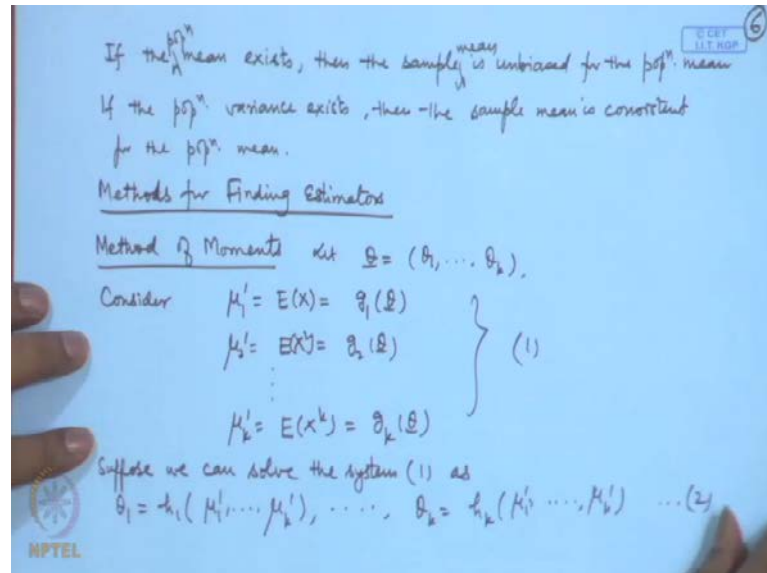 6
© CET
I.I.T. KGP
If the popⁿ mean exists, then the sample mean is unbiased for the popⁿ. mean
If the popⁿ. variance exists, then the sample mean is consistent
for the popⁿ. mean.
Methods for Finding Estimators
Method of Moments Let θ = (θ₁, ... θₖ),
Consider μ₁' = E(X) = g₁(θ)
μ₂' = E(X²) = g₂(θ)
⋮
μₖ' = E(Xᵏ) = gₖ(θ)
} (1)
Suppose we can solve the system (1) as
θ₁ = h₁(μ₁', ... μₖ'), ....., θₖ = hₖ(μ₁', ..., μₖ') ...(2)
NPTEL